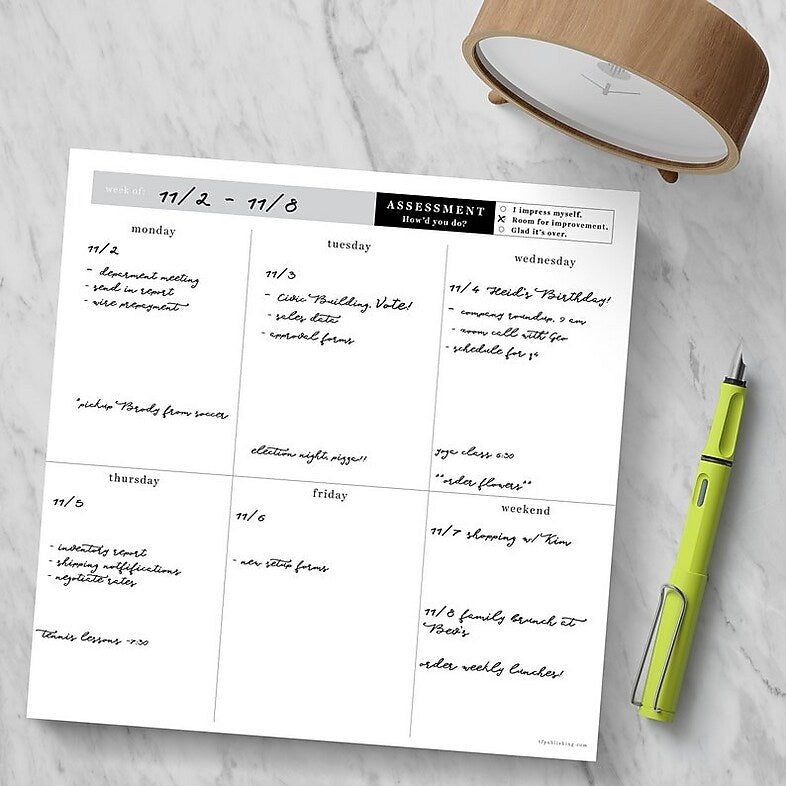 week of: 11/2 - 11/8
ASSESSMENT
How'd you do?
I impress myself.
Room for improvement.
Glad it's over.
monday
11/2
- deparment meeting
- send in report
- wire prepayment
"pickup Brody from soccer
tuesday
11/3
- Civic Building, Vote!
- sales data
- approval forms
election night, pizza!!
wednesday
11/4 Heid's Birthday!
- company roundup, 9 am
- zoom call with Geo
- schedule for q4
yoga class 6:30
**order flowers**
thursday
11/5
- inventory report
- shipping notfifications
- negotiate rates
tennis lessons -7:30
friday
11/6
- new setup forms
weekend
11/7 shopping w/ Kim
11/8 family brunch at
Bev's
order weekly lunches!
tfpublishing.com